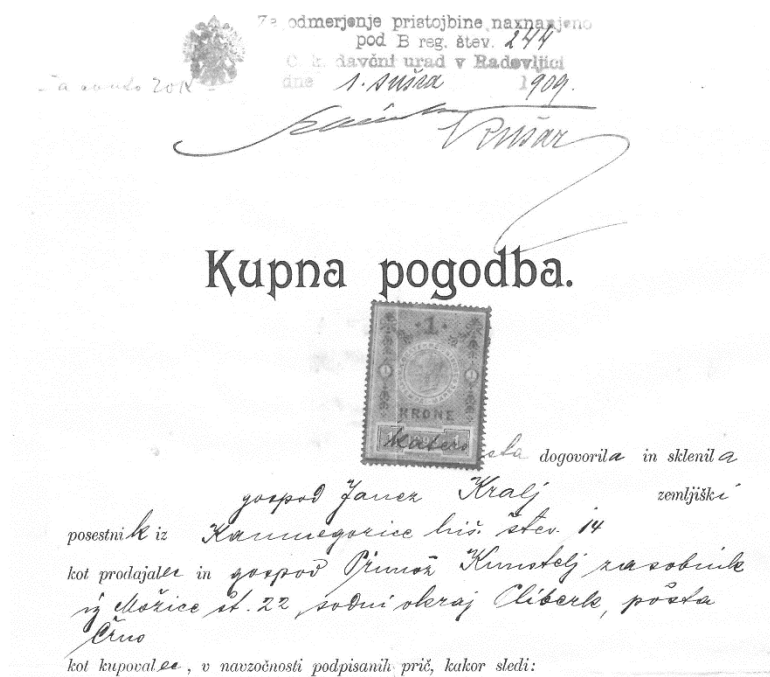 Za odmerjenje pristojbine naznanjeno
pod B reg. štev. 244
C. k. davčni urad v Radovljici
dne 1. sušca 1909.
Kupna pogodba.
1
KRONE
katero
sta dogovorila in sklenila
gospod Janez Kralj zemljiški
posestnik iz Kamnegorice hiš. štev. 14
kot prodajalec in gospod Primož Kunstelj zasobnik
iz Možice št. 22, sodni okraj Pliberk, pošta
Črno
kot kupovalec, v navzočnosti podpisanih prič, kakor sledi: